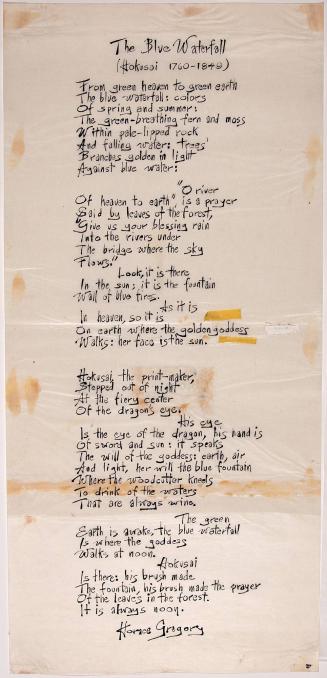 The Blue Waterfall
(Hokusai 1760-1849)
From green heaven to green earth
The blue waterfall: colors
Of spring and summer:
The green-breathing fern and moss
Within pale-lipped rock
And falling water; trees'
Branches golden in light
Against blue water:
"O river
Of heaven to earth", is a prayer
Said by leaves of the forest,
"Give us your blessing rain
Into the rivers under
The bridge where the sky
Flows."
Look, it is there
In the sun; it is the fountain
Wall of blue fires.
As it is
In heaven, so it is
On earth where the golden goddess
Walks: her face is the sun.
Hokusai, the print-maker,
Stepped out of night
At the fiery center
Of the dragon's eye.
His eye
Is the eye of the dragon, his hand is
Of sword and sun: it speaks
The will of the goddess: earth, air
And light, her will the blue fountain
Where the woodcutter kneels
To drink of the waters
That are always wine.
The green
Earth is awake, the blue waterfall
Is where the goddess
Walks at noon.
Hokusai
Is there: his brush made
The fountain, his brush made the prayer
Of the leaves in the forest.
It is always noon.
Horace Gregory